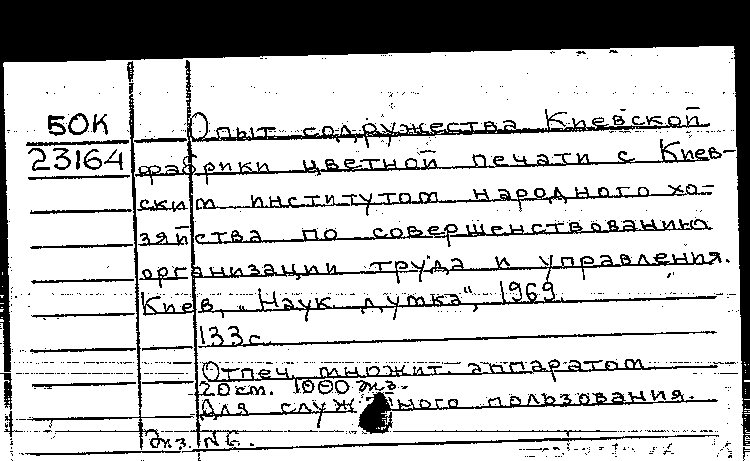 БОК
23164
Опыт содружества Киевской
фабрики цветной печати с Киев-
ским институтом народного хо-
зяйства по совершенствованию
организации труда и управления.
Киев, „Наук. думка", 1969.
133 с.
Отпеч. множит. аппаратом
20 см. 1000 экз.
Для служебного пользования.
Экз. №6.